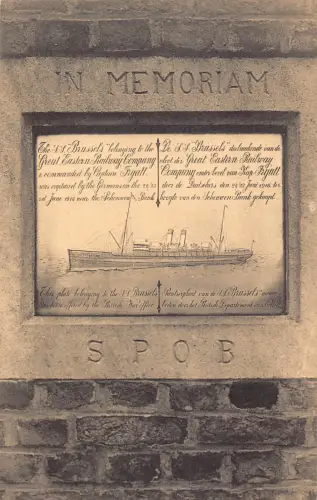 IN MEMORIAM
The S.S. Brussels" belonging to the
Great Eastern Railway Company
& commanded by Captain Fryatt
was captured by the Germans on the 22/23
June 1916 near the Schouwen Bank
De S.S Brussels" deel uitmakende van de
vloot der Great Eastern Railway
Company onder bevel van Kap. Fryatt
door de Duitschers den 22/23 Juni 1916 ter
hoogte van den Schouwen Bank gekaapt
This plate belonging to the S.S. Brussels
by the
van de S.S. Brussels"
door het
S P O B